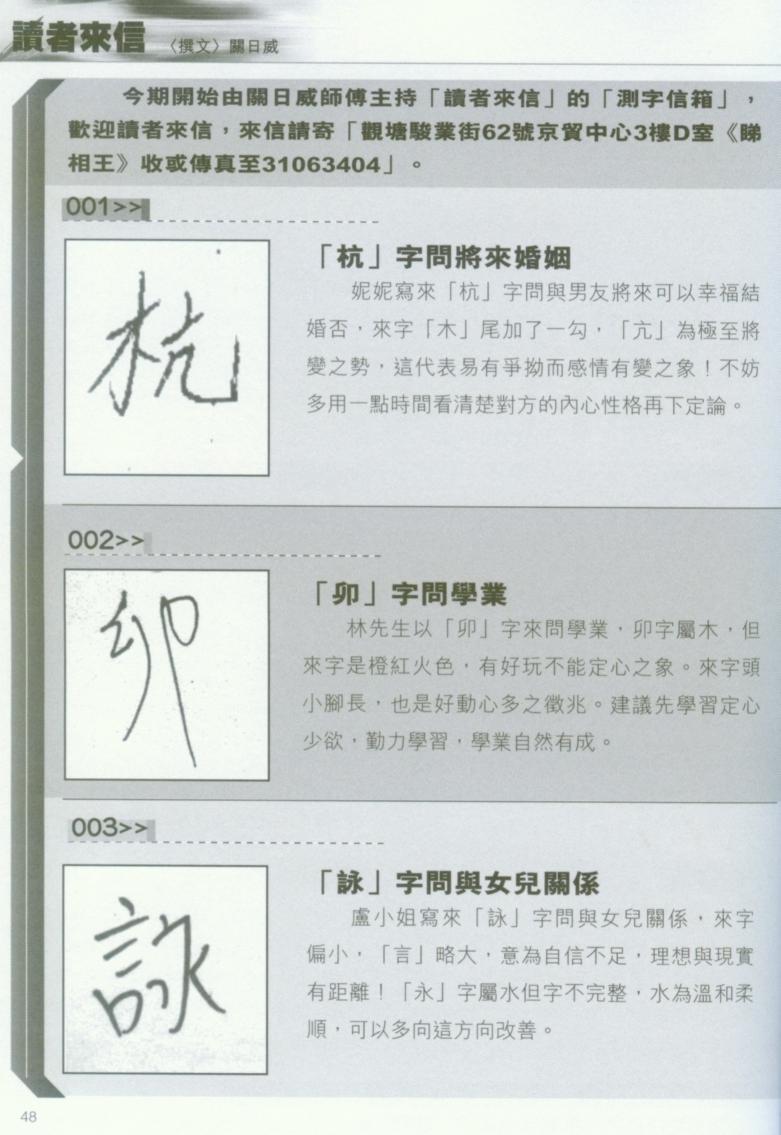 讀者來信 〈撰文〉關日威
今期開始由關日威師傅主持「讀者來信」的「測字信箱」，
歡迎讀者來信，來信請寄「觀塘駿業街62號京貿中心3樓D室《睇
相王》收或傳真至31063404」。
001>>
杭
「杭」字問將來婚姻
妮妮寫來「杭」字問與男友將來可以幸福結
婚否，來字「木」尾加了一勾，「亢」為極至將
變之勢，這代表易有爭拗而感情有變之象！不妨
多用一點時間看清楚對方的內心性格再下定論。
002>>
卯
「卯」字問學業
林先生以「卯」字來問學業，卯字屬木，但
來字是橙紅火色，有好玩不能定心之象。來字頭
小腳長，也是好動心多之徵兆。建議先學習定心
少欲，勤力學習，學業自然有成。
003>>
詠
「詠」字問與女兒關係
盧小姐寫來「詠」字問與女兒關係，來字
偏小，「言」略大，意為自信不足，理想與現實
有距離！「永」字屬水但字不完整，水為溫和柔
順，可以多向這方向改善。
48